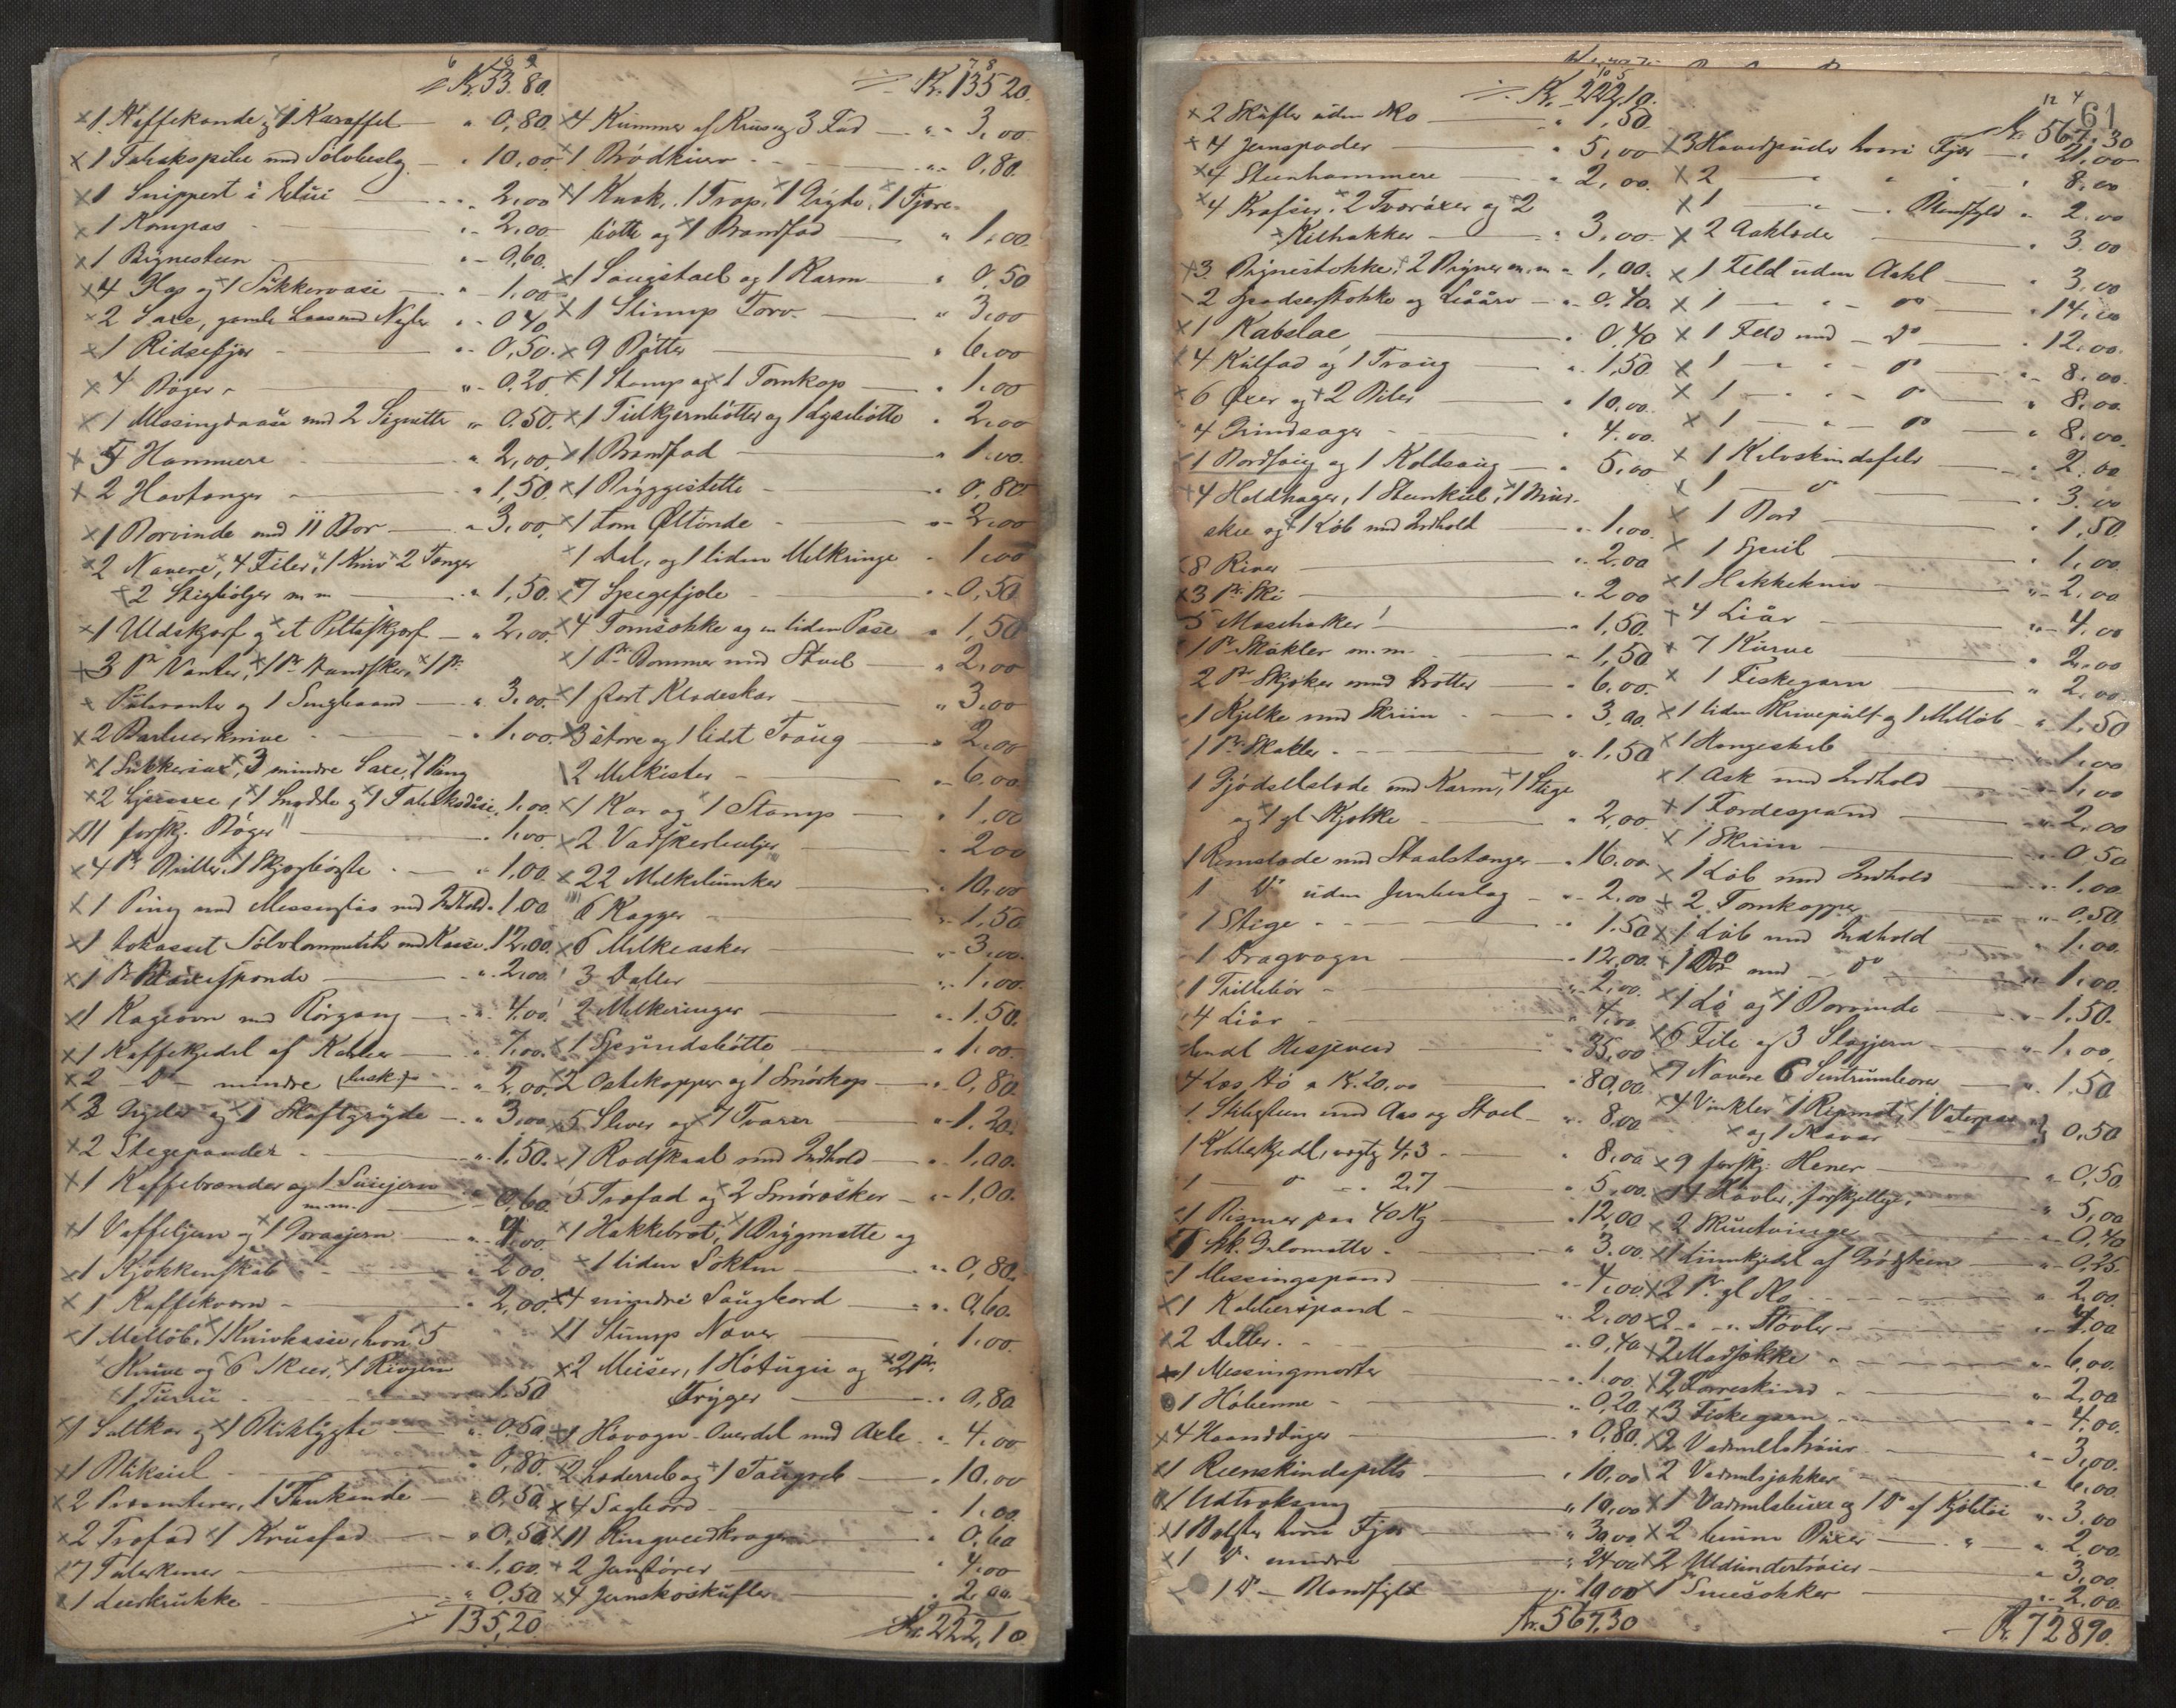 Kr. 53.80.
×1 Kaffekande og ×1 Karaffel " 0,80.
×1 Tobakspibe med Sølvbeslag " 10,00
×1 Snippert i Etui " 2,00
×1 Kompas " 2,00
×1 Brynesteen " 0,60.
×4 Glas og ×1 Sukkervase " 1,00
×2 Saxe, gamle Laase med Nøgler " 0,40
×1 Ridsefjær " 0,50.
×4 Bøger " 0,20
×1 Messingdaase med 2 Signetter " 0,50.
×5 Hammere " 2,00
×2 Hovtænger " 1,50.
×1 Borvinde med 11 Bor " 3,00
×2 Navere, ×4 Filer, ×1 Kniv ×2 Tænger
×2 Stigbøiler m m " 1,50.
×1 Uldskjorf og ×et Pottaskjorf " 2,00.
×3 Pr Vanter, ×1 Pr Handsker, ×1 Pr
× Pulsvanter og 1 " 3,00.
×2 Barbeerknive " 1,00.
×1 Sukkersax, ×3 mindre Saxe, ×1 Pung
×2 Lysesaxe, ×1 Snydde og ×1 Tobaksdaase " 1,00.
×11 forskj. Bøger " 1,00
×4 Pr Briller, 1 Skjægbørste " 1,00.
×1 Pung med Messinglaas med Indhold " 1,00
×1 tokasset Sølvlommeuhr med Kasse " 12,00.
×1 Pr " 2,00.
×1 Kageovn med Rørgang " 4,00
×1 Kaffekjedel af Kobber " 7,00.
×2 – D – mindre (brsk.) " 2,00.
×2 Gryder og ×1 Skaftgryde " 3,00
×2 Stegepander " 1,50.
×1 Kaffebrænder og 1
m.m. " 0,60
×1 Vaffeljern og ×1 Goraajern " 4,00
×1 Kjøkkenskab " 2,00.
×1 Kaffekværn " 2,00.
×1 Melløb, ×1 Knivkasse, hvori ×5
Knive og ×6 Skeer, ×1 Rivjern
×1 " 1,50
×1 Saltkar og ×1 Bliklygte " 0,50
×1 " 0,80.
×2 , 1 Thekande " 0,50
×2 Træfad ×1 Krusfad " 0,50
×7 Talerkener " 1,00.
×1 Leerkrukke " 0,50
135,20
Kr. 135 20.
×4 Kummer af Krus og 3 Fad " 3,00
×1 Brødkurv " 0,80.
×1 Knak, 1 Trap, ×1 Gryde, ×1 Tjære-
bøtte og ×1 Brandfad " 1,00
×1 Saugstael og 1 Karm " 0,50
×1 Stump Torv " 3,00
×9 Bøtter " 6,00
×1 Stamp og ×1 Tomkop " 1,00
×1 Tielkjernbøtter og 1 Lysebøtte " 2,00
×1 Brandfad " 1,00.
×1 Bryggestette " 0,80
×1 tom Øltønde " 2,00
×1 Dal, og 1 liden Melkringe " 1,00
×7 Spegefjole " 0,50
×4 Tomsække og en liden Pose " 1,50
×1 Pr Bommer med Stoel " 2,00
×1 stort Klædeskar " 3,00
×3 store og 1 lidet Traug " 2,00
2 Melkister " 6,00
×1 Kar og ×1 Stamp " 1,00
×2 Vadskerbaljer " 2 00
×22 Melkebunker " 10,00
6 Kagger " 1,50
×6 Melkeasker " 3,00.
3 Daller " 1,00.
2 Melkeringer " 1,50.
×1 Spundsbøtte " 1,00.
×2 Ostekopper og 1 Smørkop " 0,80
×5 Sliver og ×7 Tvarer " 1,20.
×1 Rodskaal med Indhold " 1,00.
5 Træfad og ×2 Smørasker " 1,00.
×1 Hakkebræt, ×1 Brygmatte og
×1 liden " 0,80.
×4 mindre Saugbord " 0,60.
×1 Stump Næver " 1,00
×2 Meiser, 1 Høtugu og ×2 Pr.
Tryger " 0,80
×1 Høvogn-Overdel med Axle " 4,00
×2 Læderreb og ×1 Taugreb " 10,00
×4 Sagbord " 1,00.
×11 " 0,60
×2 " 4,00
×4 Jernskoskufler " 2,00.
Kr. 222,10
61
Kr. 222,10.
×2 Skufler uden Sko " 1,50.
×4 Jernspader " 5,00
×4 Steenhammere " 2,00.
×4 Krafser, ×2 Tværøxer og ×2
×Kilhakker " 3,00
×3 Brynestokke, ×2 Bryner m.m " 1,00.
×2 Spadserstokke og Liaarv " 0,40.
×1 Kabslae " 0,40
×4 Kulfad og 1 Traug " 1,50
×6 Øxer og ×2 Biler " 10,00.
4 Grindsager " 4,00.
×1 Bordsaug og 1 Koldsaug " 5,00
×4 Holdhager, 1 Steenkiil, ×1 Mur-
skee og ×1 Løb med Indhold " 1,00.
×8 River " 2,00
×3 Pr. Ski " 2 00
5 Mosehakker " 1,50.
1 Pr Skakler m.m. " 1,50
2 Pr Skjøker med Brotter " 6,00.
×1 Kjelke med Skriin " 3,00.
1 Pr. Skakler " 1,50
1 Gjødselslæde med Karm, ×1 Stige
og ×1 gl Kjelke " 2,00.
1 Remslæde med Staalstænger " 16,00
1 D° uden Jernbeslag " 2,00
1 Stige " 1,50
1 Dragvogn " 12,00
1 Trillebør " 2,00.
×4 Liår " 4,00
Endl Hesjeved " 35,00
4 Læs Hø a Kr. 20,00 " 80,00.
1 Slibesteen med Aas og Stoel " 8,00
1 Kobberkjedl, vægtg 4,3 " 8,00
1 — " — 2,7 " 5,00.
1 Bismer paa 40 Kg " 12,00
Stk. Gulvmatte " 3,00.
1 Messingspand " 4,00
×1 Kobberspand " 2,00
×2 Daller " 0,40
×1 Messingmorter " 1,00.
1 Høhenne " 0,20.
×4 Haandduger " 0,80.
×1 Reenskindspelts " 10,00
1 Udtræksseng " 10,00
×1 Bolster hvori Fjær " 30,00
×1 D° mindre " 24 00
1 D° – Blandfyld " 10 00
Kr. 567,30
Kr. 567.30
×3 Hovedpuder hvori Fjær " 21,00
×2 — " — " 8,00
×1 — " — Blandfyld " 2,00
×2 Aaklæde " 3,00
×1 Feld uden Aakl " 3,00
×1 — " — D° " 14,00
×1 Feld med – D° " 12,00.
×1 — " — D° " 8,00.
×1 — " — D° " 8,00.
×1 — " — D° " 8,00.
×1 Kalvskindsfeld " 2,00
×1 — D° " 3,00
×1 Bord " 1,50.
×1 Speil " 1,00
×1 Hakkekniv " 2,00
×4 Liår " 4,00
×7 Kurve " 2,00
×1 Fiskegarn " 2,00
×1 liden Skrivepult og 1 Melløb " 1,50
×1 Hengeskab " 1,00
×1 Ask med Indhold " 1,00
×1 Færdespand " 2,00
×1 Skriin " 0,50
×1 Løb med Indhold " 1,00.
×2 Tomkopper " 0,50
×1 Løb med Indhold " 1,00.
×1 med – D° " 1,00.
×1 Lø og ×1 Borvinde " 1,50.
×6 File og 3 Slagjern " 1,00
×7 Navere 6 Sentrumborer " 1,50
×4 Vinkler ×1 Ripmot, ×1 Vaterpas
×og 1 " 0,50
×9 forskj. Hener " 0,50.
×14 Høvler, forskjellige " 5,00
×2 Skruetvinge " 0,40
×1 Liimkjedel af Grødsteen " 0,25.
×2 Pr. gl Sko " 2,00.
×2 " " Støvler " 4,00
×2 Madsække " 6,00.
×2 Faareskind " 2,00
×3 Fiskegarn " 4,00.
×2 Vadmelstrøier " 3,00.
×2 Vadmelsjakker " 6,00.
×1 Vadmelsbuxe og 1 D° af Kjøbtøi " 3,00
×2 Buxer " 2,00.
×2 Uldundertrøier " 3,00.
×1 Snesokker " 2,00.
Kr. 728 90.